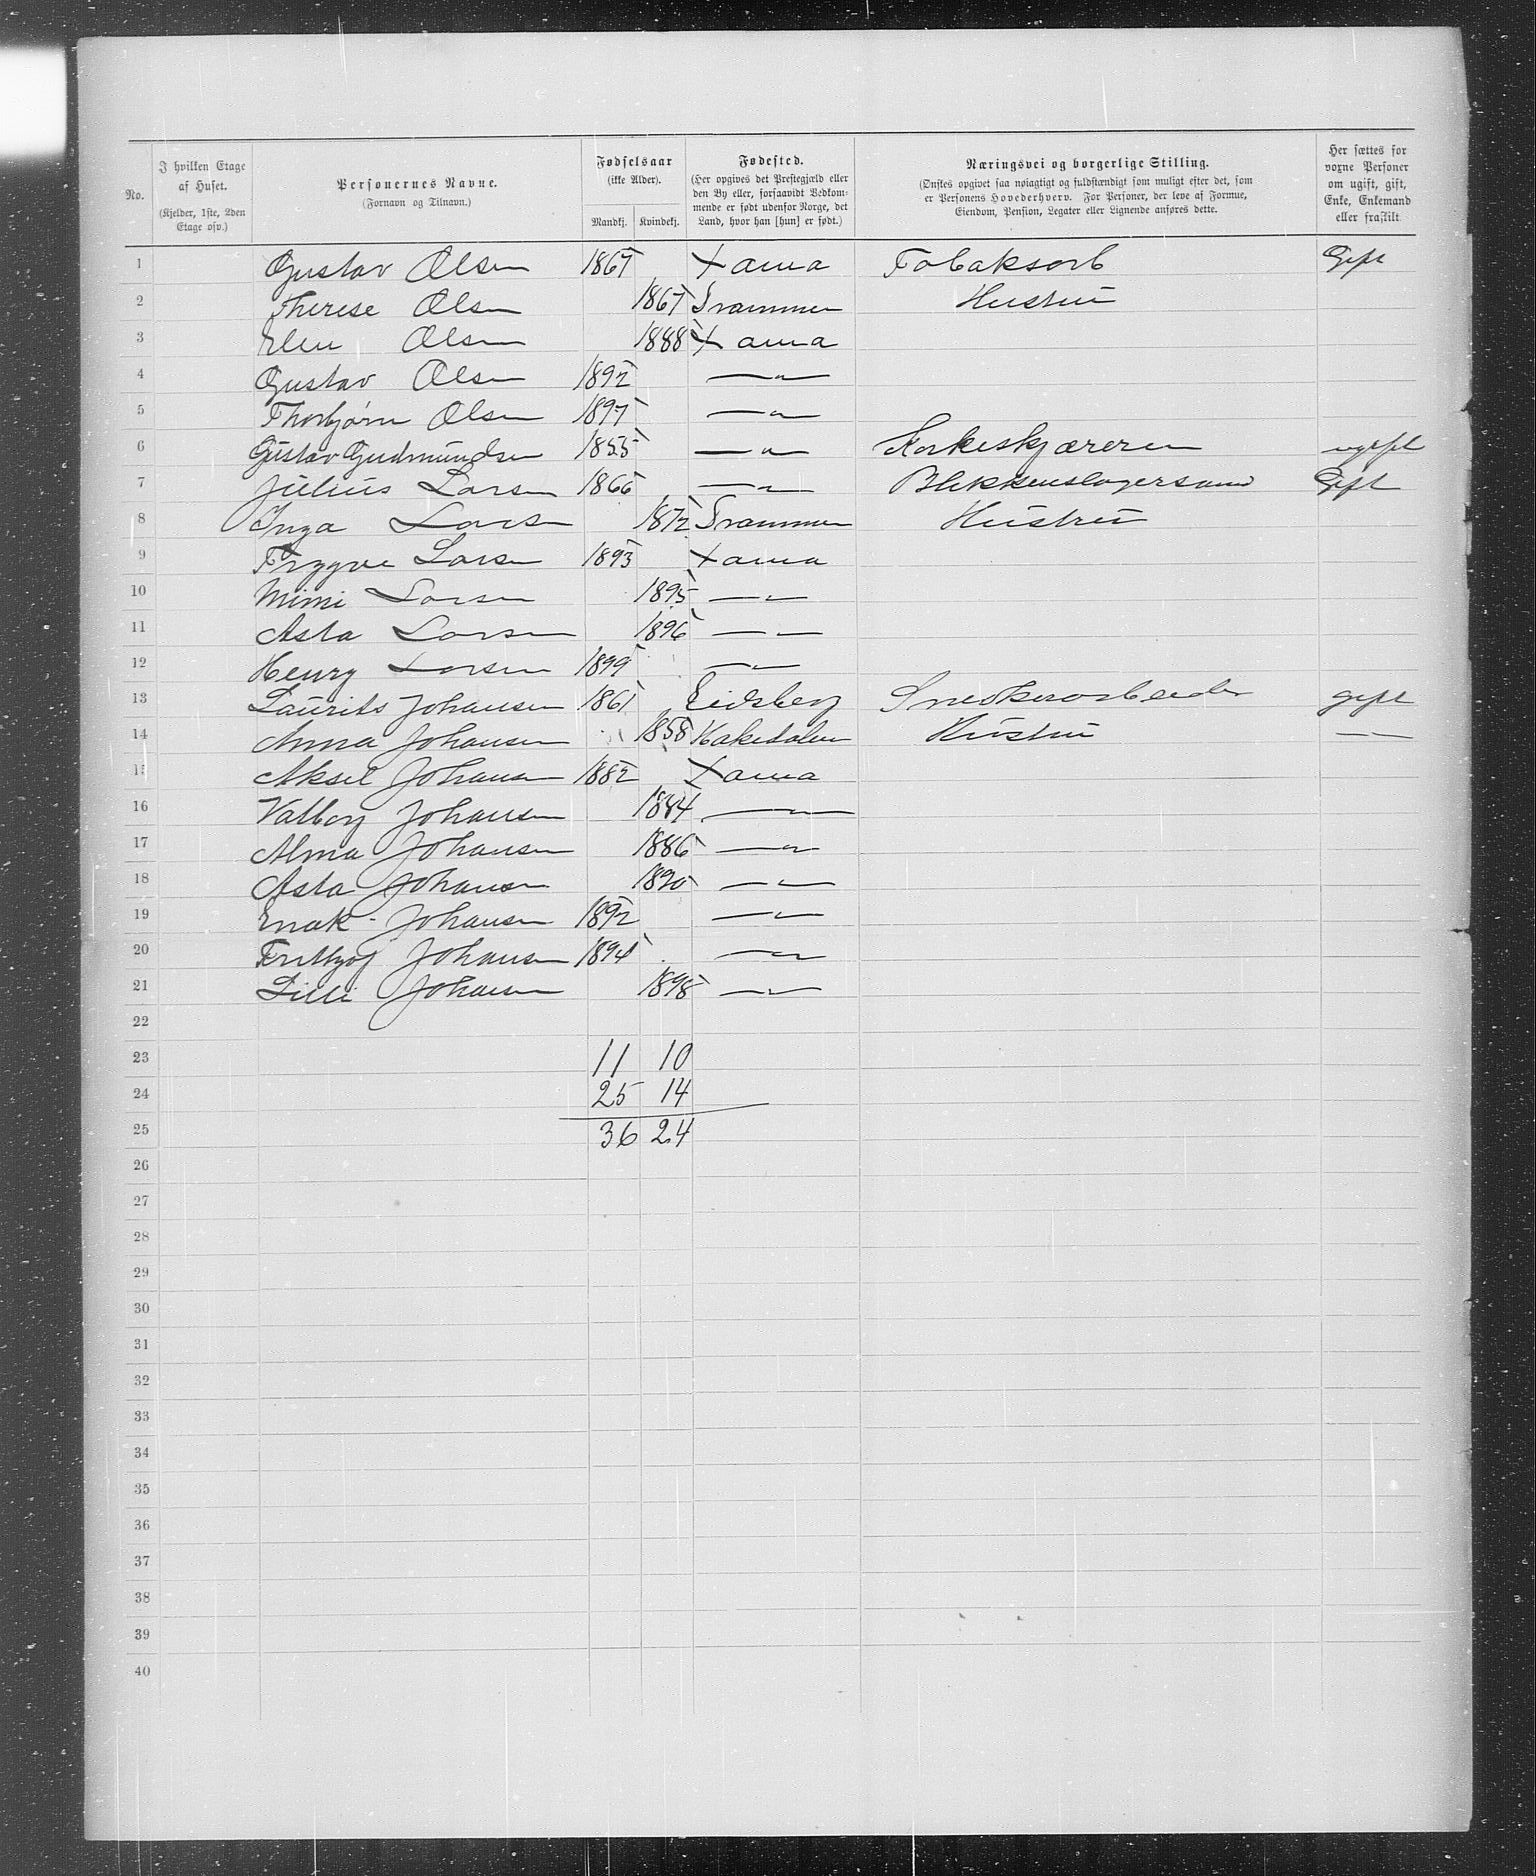 No. | I hvilken Etage af Huset. (Kjelder, 1ste, 2den Etage osv.) | Personernes Navne. (Fornavn og Tilnavn.) | Fødselsaar (ikke Alder). Mandkj. | Kvindekj. | Fødested. (Her opgives det Prestegjæld eller den By eller, forsaavidt Vedkommende er født udenfor Norge, det Land, hvor han [hun] er født.) | Næringsvei og borgerlige Stilling. (Ønskes opgivet saa nøiagtigt og fuldstændigt som muligt efter det, som er Personens Hovederhverv. For Personer, der leve af Formue, Eiendom, Pension, Legater eller Lignende anføres dette. | Her sættes for voxne Personer om ugift, gift, Enke, Enkemand eller fraskilt.
1 Gustav Olsen 1867 Xania Tobaksarb Gift
2 Therese Olsen 1867 Drammen Hustru
3 Elen Olsen 1888 Xania
4 Gustav Olsen 1892 — " —
5 Thorbjørn Olsen 1897 — " —
6 Gustav Gudmundsen 1855 — " — Korkeskjæreren ugift
7 Julius Larsen 1866 — " — Blikkenslagersvend Gift
8 Inga Larsen 1872 Drammen Hustru
9 Trygve Larsen 1893 Xania
10 Mimi Larsen 1895 — " —
11 Asta Larsen 1896 — " —
12 Henry Larsen 1899 — " —
13 Laurits Johansen 1861 Eidsberg Snedkerarbeider gift
14 Anna Johansen 1858 Hakedalen Hustru — —
15 Aksel Johansen 1882 Xania
16 Valborg Johansen 1884 — " —
17 Alma Johansen 1886 — " —
18 Asta Johansen 1890 — " —
19 Enok Johansen 1892 — " —
20 Frithjof Johansen 1894 — " —
21 Lilli Johansen 1898 — " —
22
23 11 10
24 25 14
25 36 24
26
27
28
29
30
31
32
33
34
35
36
37
38
39
40